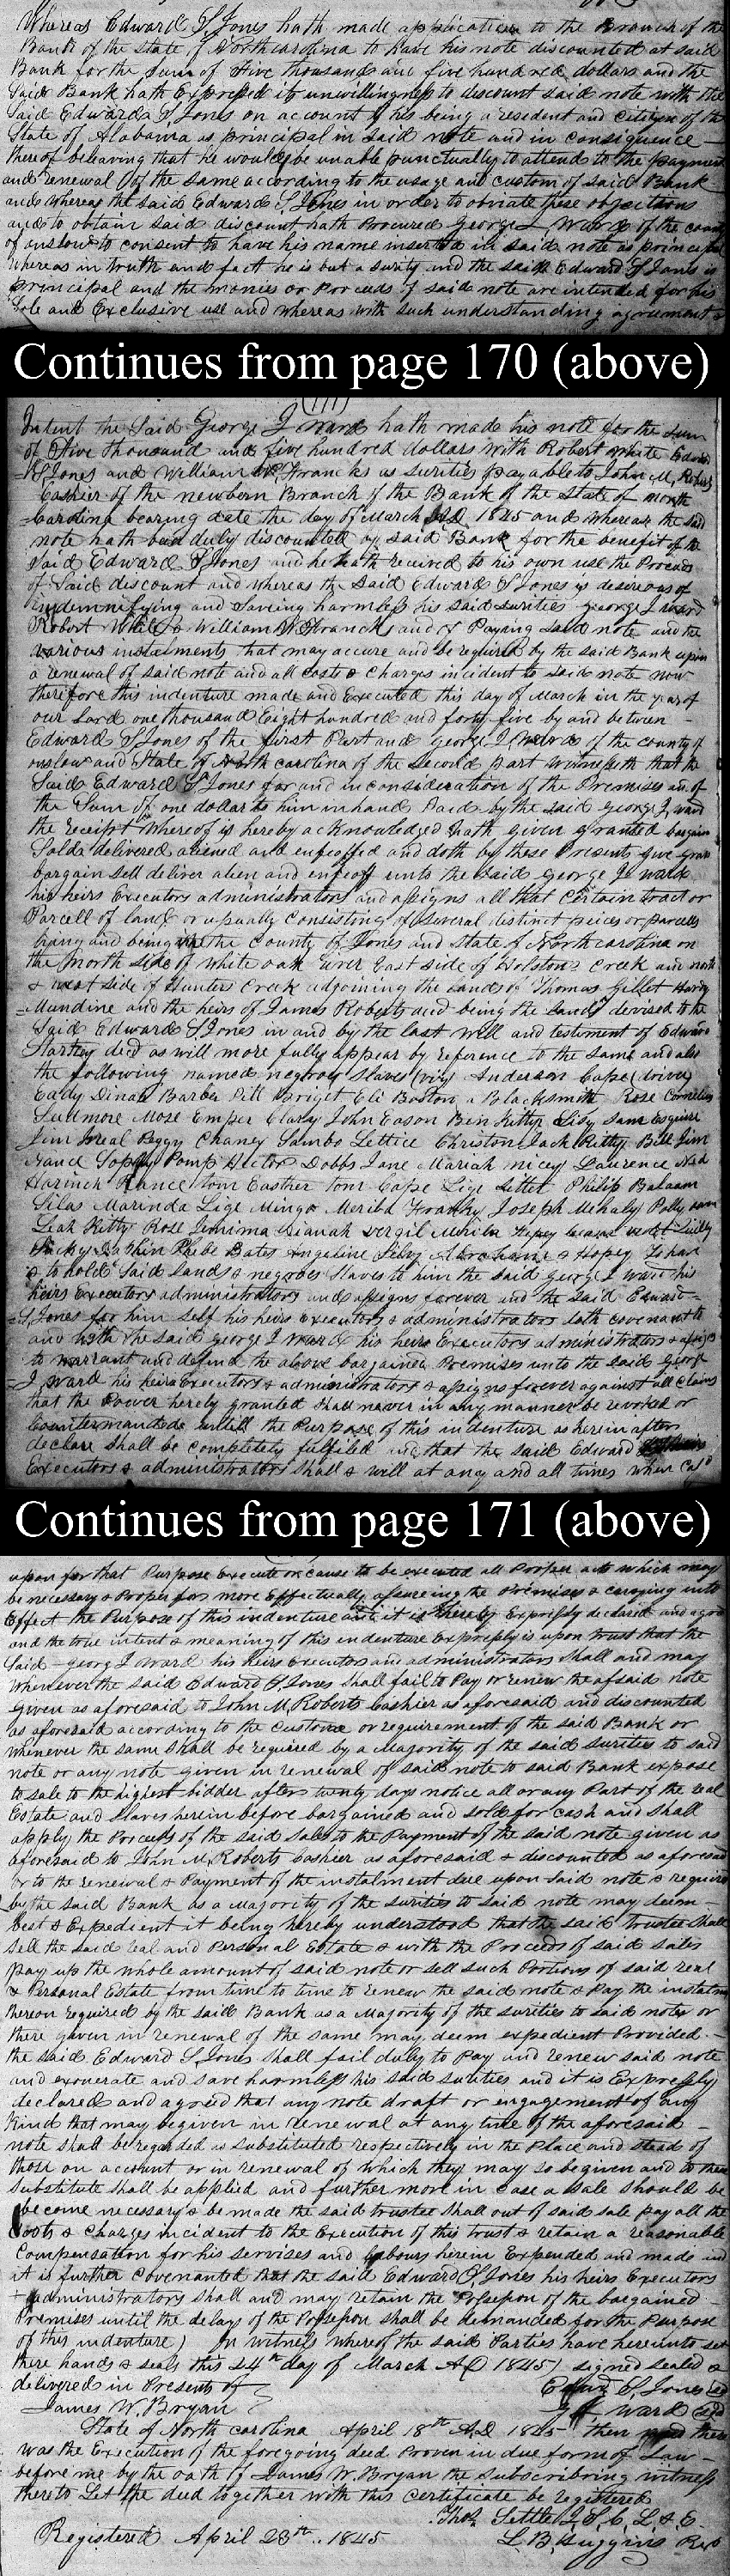 Whereas Edward S Jones hath made application to the Branch of the
Bank of the State of Northcarolina to have his note discounted at said
Bank for the Sum of Five thousand and five hundred dollars and the
Said Bank hath Expressed its unwillingness to discount said note with the
Said Edward S Jones on account of his being a resedent and Citizen of the
State of Alabama as principal in said note and in consequence
thereof beleaving that he would be unable punctually to attend to the payment
and renewal of the same according to the usage and custom of said Bank
and whereas the said Edward S Jones in order to obviate these objections
and to obtain said discount hath Procured George J Ward of the county
of onslow to consent to have his name inserted in said note as principal
whereas in truth and fact he is but a surity and the said Edward S Jones is
principal and the monies or Proceeds of said note are intended for his
Sole and Exclusive use and whereas with such understanding agreement &
Continues from page 170 (above)
(171)
Intent the Said George J Ward hath made his note for the sum
of Five thousand and five hundred dollars with Robert White Edward
S Jones and William W Francks as surities payable to John M, Roberts
Cashier of the newbern Branch of the Bank of the State of North
Carolina bearing date the day of March AD 1845 and whereas the said
note hath bad duly discounted by said Bank for the benefit of the
said Edward S Jones and he hath received to his own use the Proceeds
of Said discount and whereas the Said Edward S Jones is desireous of
indemnifying and Saveing harmless his said surities george J ward
Robert White & William W Francks and of Paying said note and the
various instalments that may accure and be required by the said Bank upon
a renewal of said note and all costs & Charges incident to said note now
therefore this indenture made and Executed this day of March in the year of
our Lord one thousand Eight hundred and forty five by and between
Edward S Jones of the first Part and george J Ward of the county of
onslow and State of North carolina of the Second part witnesseth that the
Said Edward S Jones for and in consideration of the Premises and of
the Sum of one dollar to him in hand Paid by the said george J, ward
the receipt whereof is hereby acknowledged hath given granted bargain
Sold delivered aliened and enfeoffed and doth by these Presents give grant
bargain sell deliver alien and enfeoff unto the said george J ward
his heirs Executors administrators and assigns all that Certain tract or
Parcell of land or usually Consisting of several distinct peices or parcels
lying and being in the County of Jones and state of Northcarolina on
the North side of White oak river East side of Holstons Creek and north
& west side of Hunters Creek adjoining the lands of Thomas Gillet Hardy
Mundine and the heirs of James Roberts and being the lands devised to the
Said Edward S Jones in and by the last Will and testiment of Edward
Starkey decd as will more fully appear by reference to the same and also
the following named negroes slaves (viz) Anderson Cape (driver)
Eady Dinah Barbee Pitt Briget Eli Boston a Blacksmith Rose Cornelius
Ludmore Mose Emper Clary John Eason Ben Kitty Lisy Sam Esquire
Jim Neal Peggy Chaney Sambo Lettice Christon Jack Kitty Bill Jim
Nance Sophy Pomp Hector Dobbs Jane Mariah nicey Laurence Ned
Nance Tom Easther Tom Cape Lige Lettet Philip Balaam
Silas Marinda Lige Mingo Merild Franky Joseph Mihaly Polly
Leah Kitty Rose Jemima Dianah Vergil
Phebe Bates Angeline Abraham & Hopey To have
& to hold Said lands & negroes Slaves to him the said george J ward his
heirs Executors administrators and assigns forever and the Said Edward
S, Jones for him self his heirs executors & administrators doth covenant to
and with the said george J ward his heirs Executors administrators & assigns
to warrant and defend the above bargained Premises unto the said George
J ward his heirs Executors & administrators & assigns forever against all claims
that the Power hereby granted shall never in any manner be revoked or
Countermanded untill the Purpose of this indenture as herein after
declare shall be completely fulfiled and that the said Edward
Executors & administrators shall & will at any and all times when Cald
Continues from page 171 (above)
upon for that Purpose Execute or cause to be executed all Proper acts which may
be necessary & Proper for more Effectually assureing the Premises & carrying into
Effect the Purpose of this indenture and it is hereby Expressly declared and agreed
and the true intent & meaning of this indenture Expressly is upon trust that the
Said george J Ward his heirs Executors and administrators Shall and may
Whenever the said Edward S, Jones Shall fail to Pay or renew the afsaid note
given as aforesaid to John M, Roberts Cashier as aforesaid and discounted
as aforesaid according to the Custome or requirement of the said Bank or
whenever the same Shall be required by a Majority of the said surities to said
note or any note given in renewal of said note to said Bank expose
to sale to the highest bidder after twenty days notice all or any Part of the real
Estate and Slaves herein before bargained and sold for cash and shall
apply the Proceeds of the said Sale to the Payment of the said note given as
aforesaid to John M, Roberts Cashier as aforesaid & discounted as aforesaid
or to the renewal & Payment of the instalment due upon said note & required
by the said Bank as a Majority of the surities to said note may deem
best & Expedient it being hereby understood that the said trustee Shall
Sell the said real and Personal Estate & with the Proceeds of said sales
pay up the whole amount of said note or sell such Portions of said real
& Personal Estate from time to time to renew the said note & Pay the instalment
thereon required by the said Bank as a Majority of the surities to said note or
there given in renewal of the same may deem expedient Provided
the said Edward S Jones shall fail duly to Pay and renew said note
and exonerate and save harmless his said surities and it is Expressly
declared and agreed that any note draft or engagement of any
Kind that may be given in renewal at any time of the aforesaid
note shall be regarded as substituted respectively in the Place and stead of
those on account or in renewal of which they may so be given and to them
Substitute shall be applied and further more in case a Sale should be
become necessary & be made the said trustee Shall out of said sale pay all the
Costs & Charges incident to the Execution of this trust & retain a reasonable
Compensation for his servises and labours herein Expended and made and
it is further Covenanted that the said Edward S, Jones his heirs Executors
& administrators shall and may retain the Possession of the bargained
Premises until the delays of the Possession shall be demanded for the Purpose
of this indenture) In Witness Whereof the said Parties have hereunto set
there hands & seals this 24th day of March AD 1845) signed sealed &
delivered in Presents of Edward S, Jones seal
James W, Bryan G J, Ward seal
State of North carolina April 18th AD 1845 then
was the Execution of the foregoing deed Proven in due form of Law
before me by the oath of James W. Bryan the subscribring witness
thereto Let the deed together with this Certificate be registered
Thos Settle J, S, C, L, & E
Registered April 23th 1845 L, B, Huggins Reg